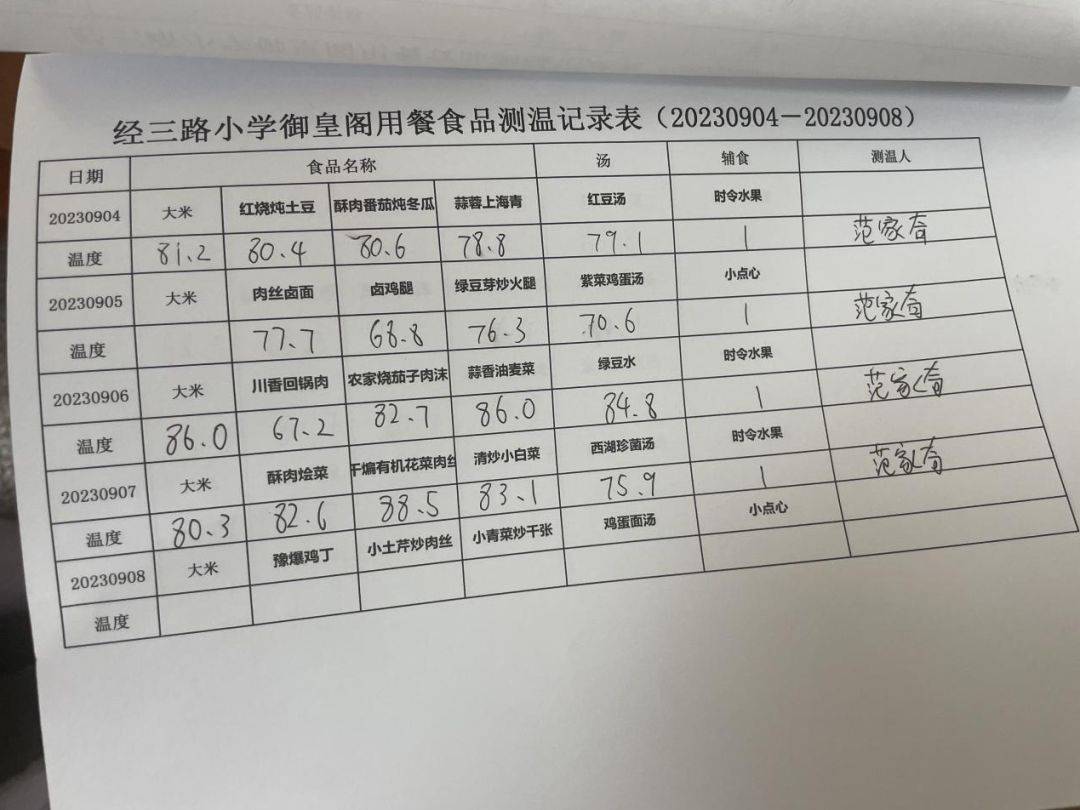 经三路小学御皇阁用餐食品测温记录表（20230904－20230908）
日期 食品名称 汤 辅食 测温人
20230904 大米 红烧炖土豆 酥肉番茄炖冬瓜 蒜蓉上海青 红豆汤 时令水果
温度 81.2 80.4 80.6 78.8 79.1 1 范家畲
20230905 大米 肉丝卤面 卤鸡腿 绿豆芽炒火腿 紫菜鸡蛋汤 小点心
温度 77.7 68.8 76.3 70.6 1 范家畲
20230906 大米 川香回锅肉 农家烧茄子肉沫 蒜香油麦菜 绿豆水 时令水果
温度 86.0 67.2 82.7 86.0 84.8 1 范家畲
20230907 大米 酥肉烩菜 干煸有机花菜肉丝 清炒小白菜 西湖珍菌汤 时令水果
温度 80.3 82.6 88.5 83.1 75.9 1 范家畲
20230908 大米 豫爆鸡丁 小土芹炒肉丝 小青菜炒千张 鸡蛋面汤 小点心
温度